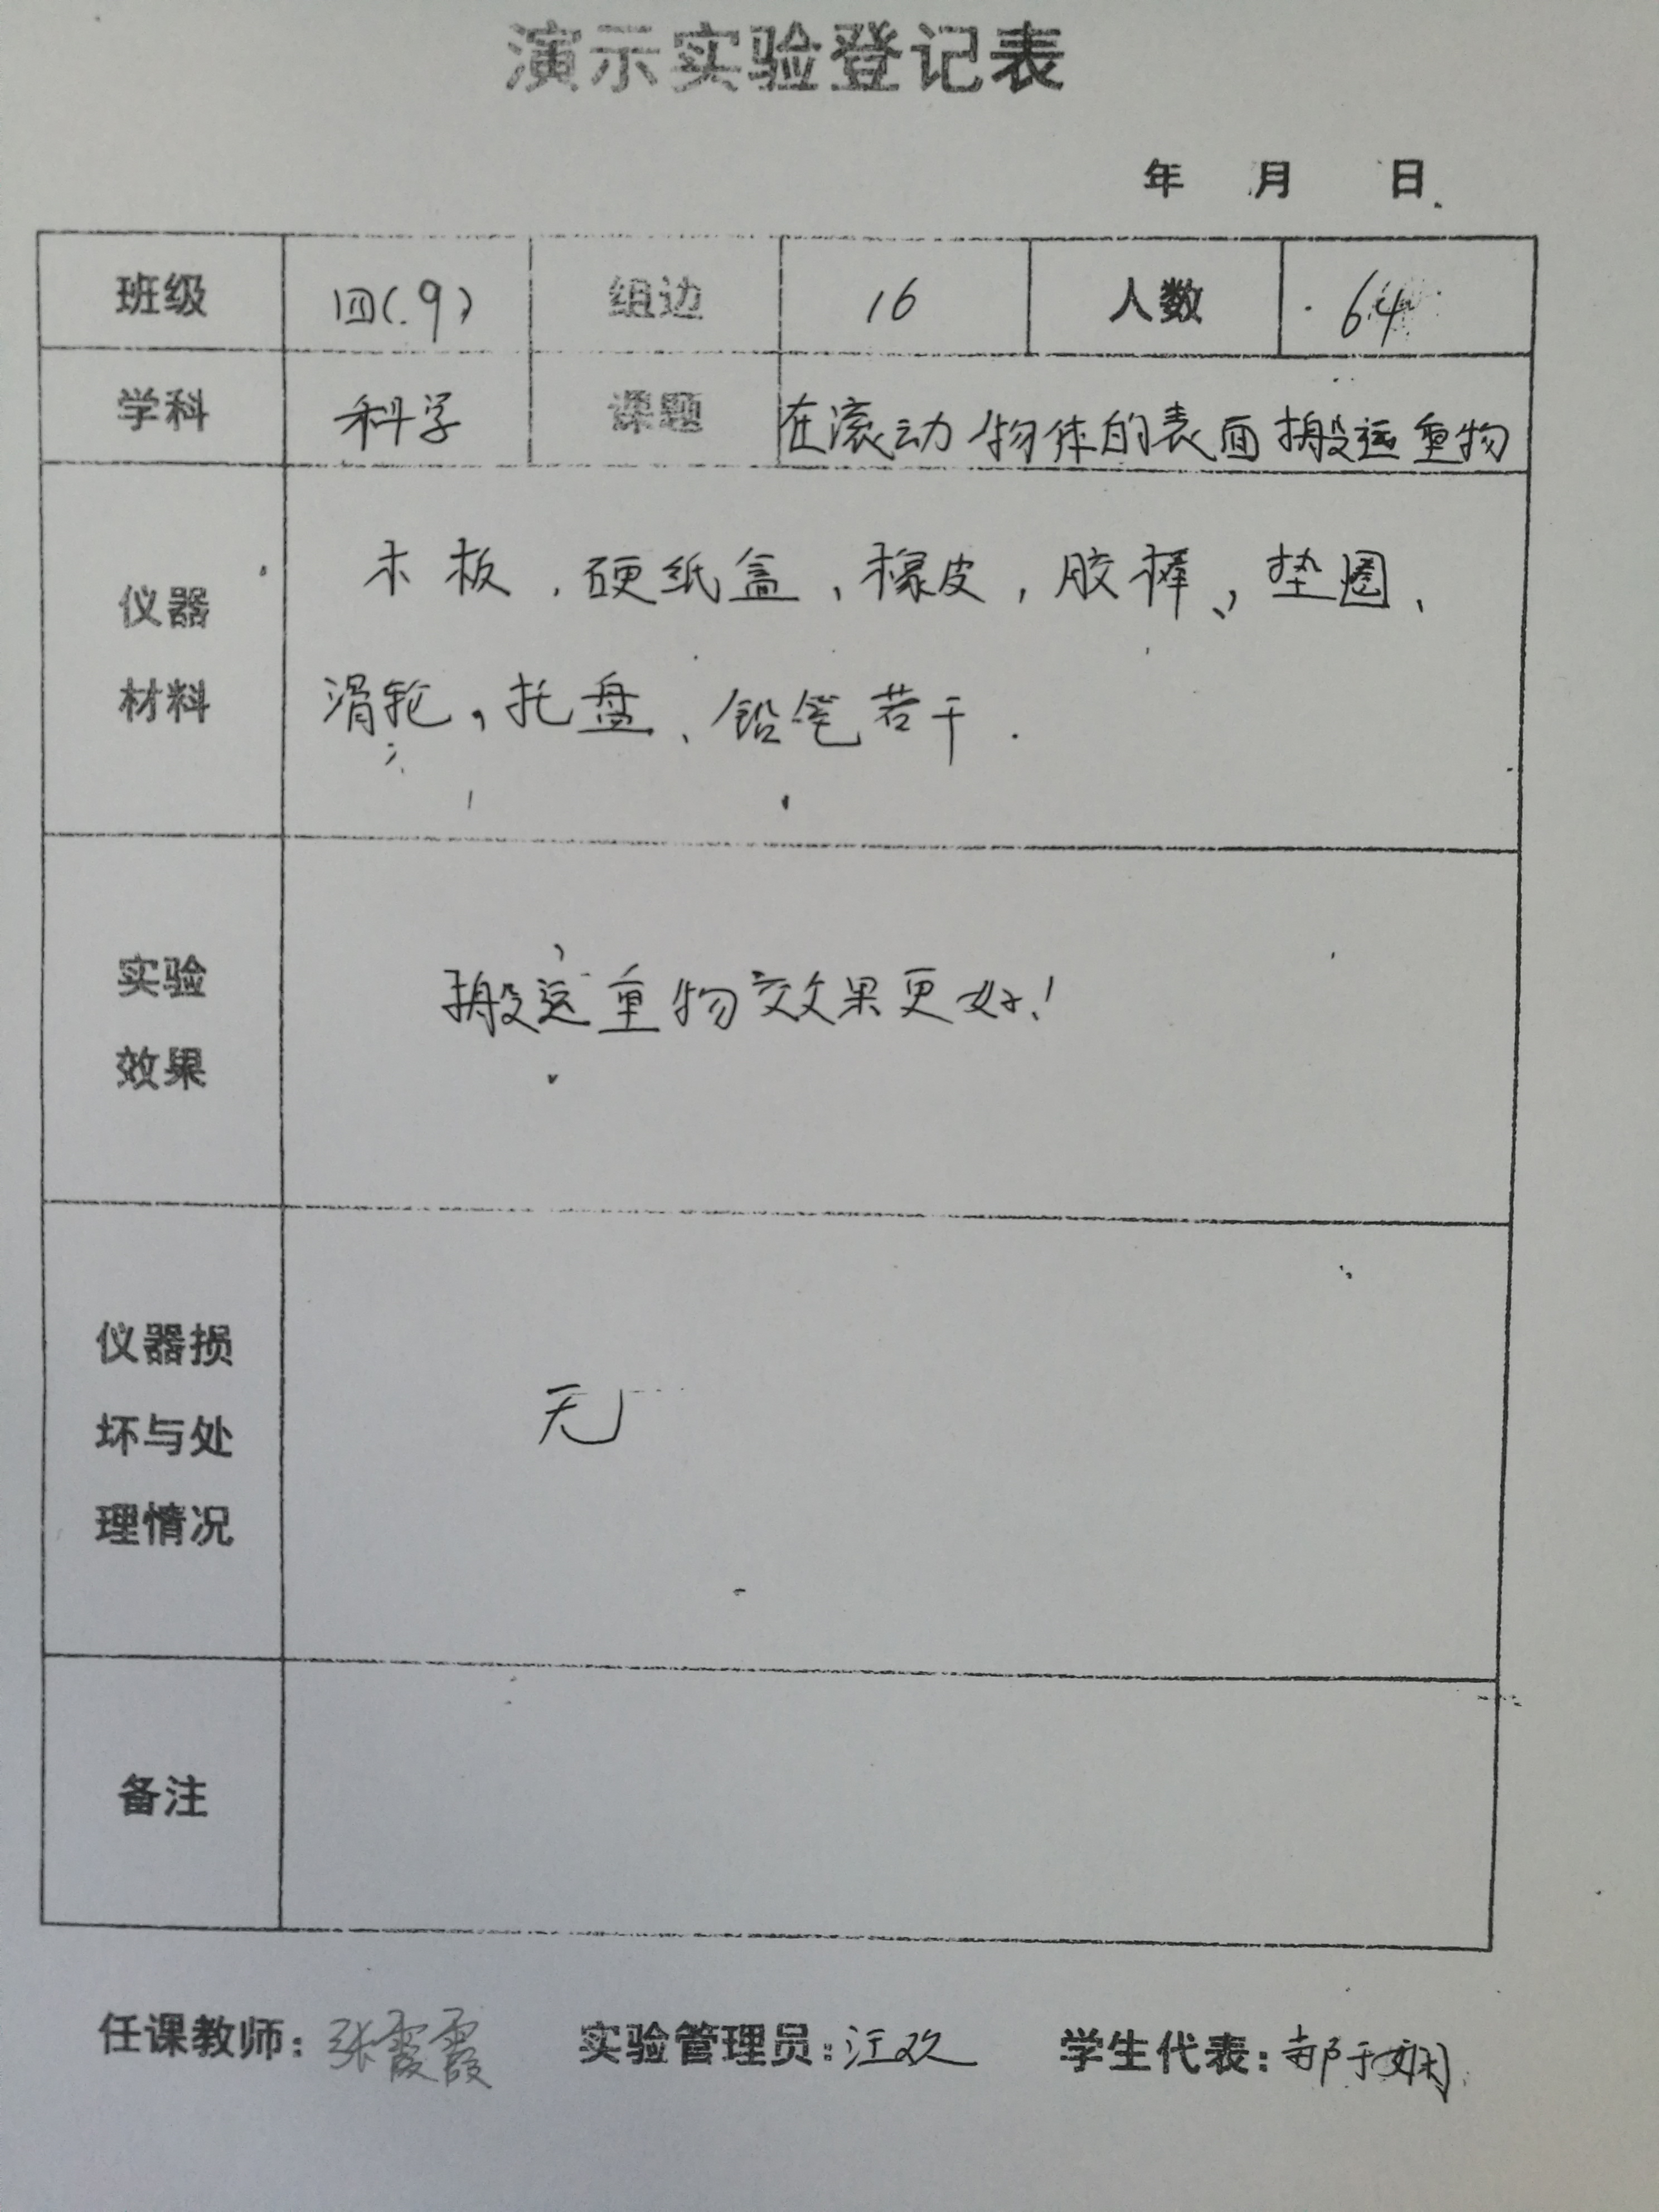 演示实验登记表
年 月 日
班级 四(9) 组边 16 人数 64
学科 科学 课题 在滚动物体的表面搬运重物
仪器
材料
木板，硬纸盒，橡皮，胶棒，垫圈、
滑轮，托盘、铅笔若干.
实验
效果
搬运重物效果更好！
仪器损
坏与处
理情况
无
备注
任课教师：张霞霞 实验管理员：汪欢 学生代表：郝于娴